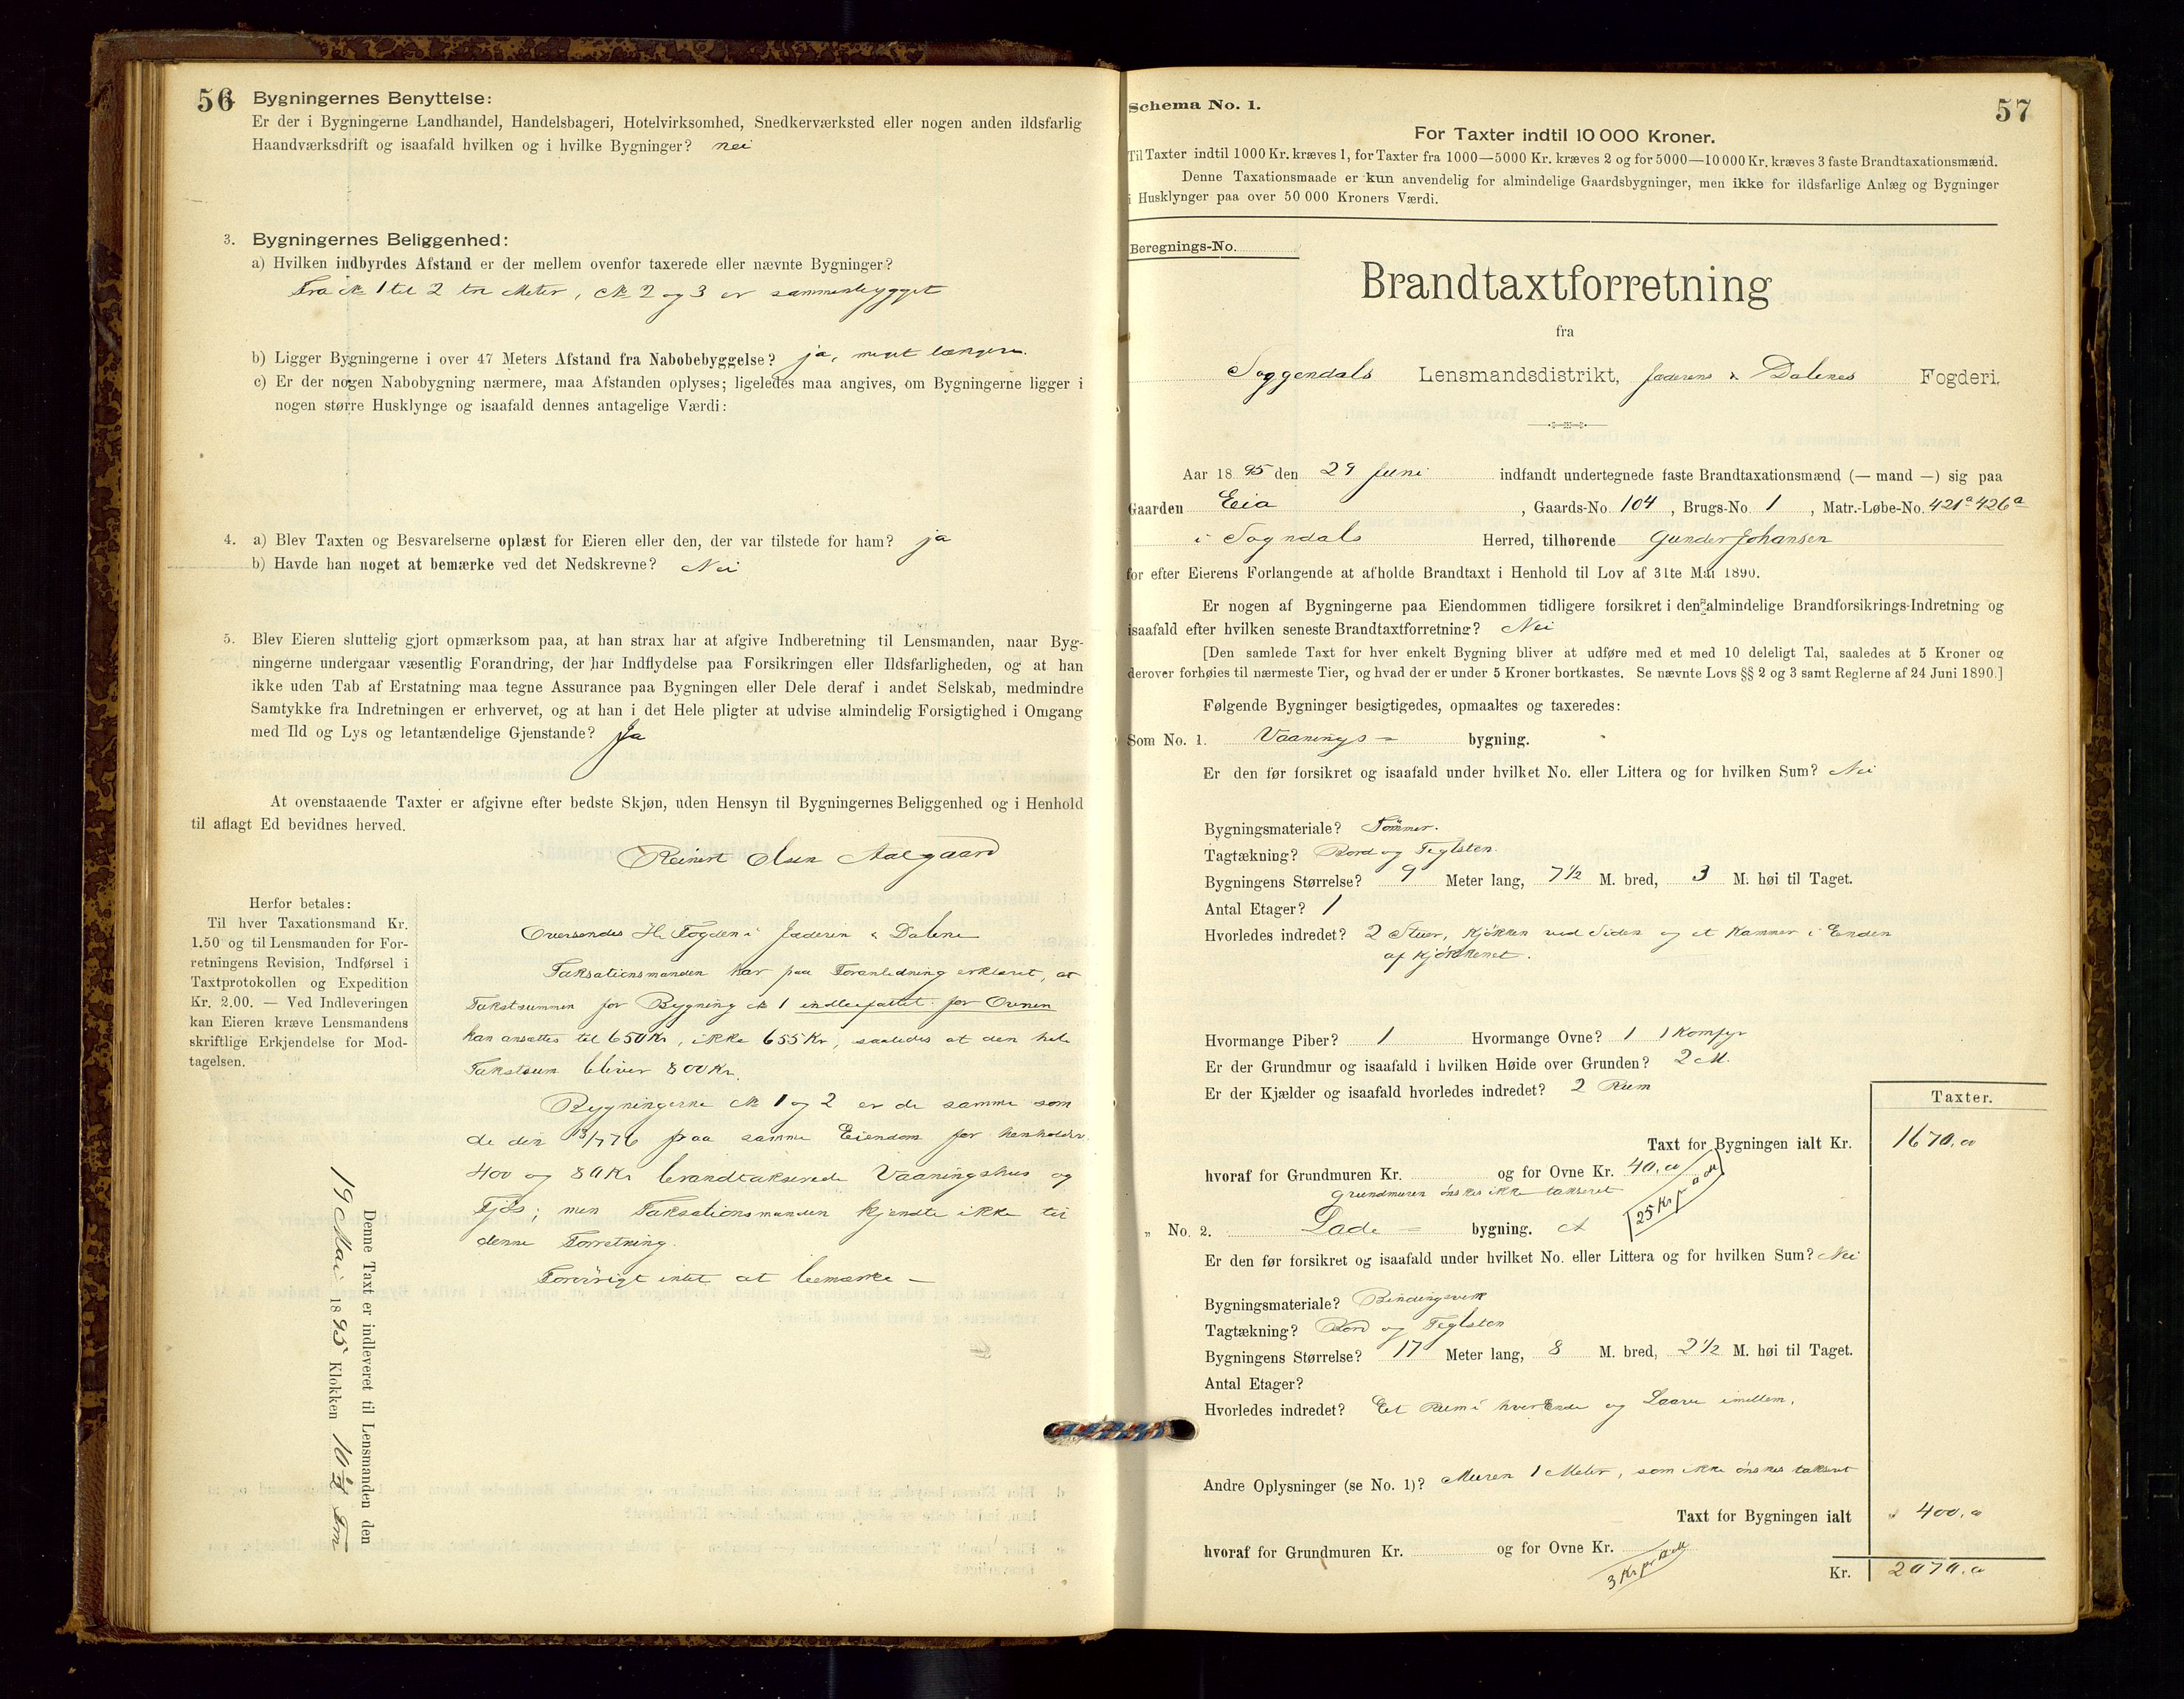 56
Bygningernes Benyttelse:
Er der i Bygningerne Landhandel, Handelsbageri, Hotelvirksomhed, Snedkerværksted eller nogen anden ildsfarlig
Haandværksdrift og isaafald hvilken og i hvilke Bygninger? nei
3. Bygningernes Beliggenhed:
a) Hvilken indbyrdes Afstand er der mellem ovenfor taxerede eller nævnte Bygninger?
Fra № 1 til 2 tre Meter, № 2 og 3 er sammenbygget
b) Ligger Bygningerne i over 47 Meters Afstand fra Nabobebyggelse? ja, meget længere.
c) Er der nogen Nabobygning nærmere, maa Afstanden oplyses; ligeledes maa angives, om Bygningerne ligger i
nogen større Husklynge og isaafald dennes antagelige Værdi:
4. a) Blev Taxten og Besvarelserne oplæst for Eieren eller den, der var tilstede for ham? ja
b) Havde han noget at bemærke ved det Nedskrevne? Nei
5. Blev Eieren sluttelig gjort opmærksom paa, at han strax har at afgive Indberetning til Lensmanden, naar Byg-
ningerne undergaar væsentlig Forandring, der har Indflydelse paa Forsikringen eller Ildsfarligheden, og at han
ikke uden Tab af Erstatning maa tegne Assurance paa Bygningen eller Dele deraf i andet Selskab, medmindre
Samtykke fra Indretningen er erhvervet, og at han i det Hele pligter at udvise almindelig Forsigtighed i Omgang
med Ild og Lys og letantændelige Gjenstande? Ja
At ovenstaaende Taxter er afgivne efter bedste Skjøn, uden Hensyn til Bygningernes Beliggenhed og i Henhold
til aflagt Ed bevidnes herved.
Reinert Olsen Aalgaard
Herfor betales:
Til hver Taxationsmand Kr.
1.50 og til Lensmanden for For-
retningens Revision, Indførsel i
Taxtprotokollen og Expedition
Kr. 2.00. — Ved Indleveringen
kan Eieren kræve Lensmandens
skriftlige Erkjendelse for Mod-
tagelsen.
Oversendes Hr Fogden i Jæderen & Dalene
Taksationsmanden har paa Foranledning erklæret, at
Takstsummen for Bygning № 1 indbefattet for Ovnen
kan ansættes til 650 Kr, ikke 655 Kr, saaledes at den hele
Takstsum bliver 800 Kr.
Bygningerne № 1 og 2 er de samme som
de den 13/7 76 paa samme Eiendom for henholdsv.
400 og 80 Kr brandtakserede Vaaningshus og
Fjøs; men Taksationsmanden kjendte ikke til
denne Forretning.
Forøvrigt intet at bemærke —
Denne Taxt er indleveret til Lensmanden den
19 Mai 1895 Klokken 10 1/2 Fm
57
Schema No. 1.
For Taxter indtil 10 000 Kroner.
Til Taxter indtil 1000 Kr. kræves 1, for Taxter fra 1000—5000 Kr. kræves 2 og for 5000—10 000 Kr. kræves 3 faste Brandtaxationsmænd.
Denne Taxationsmaade er kun anvendelig for almindelige Gaardsbygninger, men ikke for ildsfarlige Anlæg og Bygninger
i Husklynger paa over 50 000 Kroners Værdi.
Beregnings-No.
Brandtaxtforretning
fra
Soggendals Lensmandsdistrikt, Jæderens & Dalenes Fogderi.
Aar 1895 den 29 Juni indfandt undertegnede faste Brandtaxationsmænd (— mand —) sig paa
Gaarden Eia, Gaards-No. 104, Brugs-No. 1, Matr.-Løbe-No. 421a 426a
i Sogndals Herred, tilhørende Gunder Johansen
for efter Eierens Forlangende at afholde Brandtaxt i Henhold til Lov af 31te Mai 1890.
Er nogen af Bygningerne paa Eiendommen tidligere forsikret i den almindelige Brandforsikrings-Indretning og
isaafald efter hvilken seneste Brandtaxtforretning? Nei
[Den samlede Taxt for hver enkelt Bygning bliver at udføre med et med 10 deleligt Tal, saaledes at 5 Kroner og
derover forhøies til nærmeste Tier, og hvad der er under 5 Kroner bortkastes. Se nævnte Lovs §§ 2 og 3 samt Reglerne af 24 Juni 1890.]
Følgende Bygninger besigtigedes, opmaaltes og taxeredes:
Som No. 1. Vaanings- bygning.
Er den før forsikret og isaafald under hvilket No. eller Littera og for hvilken Sum? Nei
Bygningsmateriale? Tømmer.
Tagtækning? Bord og Teglsten.
Bygningens Størrelse? 9 Meter lang, 7 1/2 M. bred, 3 M. høi til Taget.
Antal Etager? 1
Hvorledes indredet? 2 Stuer, Kjøkken ved Siden og et Kammer i Enden
af Kjøkkenet.
Hvormange Piber? 1 Hvormange Ovne? 1 1 Komfyr
Er der Grundmur og isaafald i hvilken Høide over Grunden? 2 M.
Er der Kjælder og isaafald hvorledes indredet? 2 Rum
Taxter.
Taxt for Bygningen ialt Kr. 1670.00
hvoraf for Grundmuren Kr. og for Ovne Kr. 40.00
Grundmuren ønskes ikke takseret
" No. 2. Lade- bygning. A
Er den før forsikret og isaafald under hvilket No. eller Littera og for hvilken Sum? Nei
Bygningsmateriale? Bindingsverk
Tagtækning? Bord og Teglsten
Bygningens Størrelse? 17 Meter lang, 8 M. bred, 2 1/2 M. høi til Taget.
Antal Etager?
Hvorledes indredet? Et Rum i hver Ende og Laave imellem.
Andre Oplysninger (se No. 1)? Muren 1 Meter, som ikke ønskes takseret
Taxt for Bygningen ialt " 400.00
hvoraf for Grundmuren Kr. og for Ovne Kr.
Kr. 2070.00